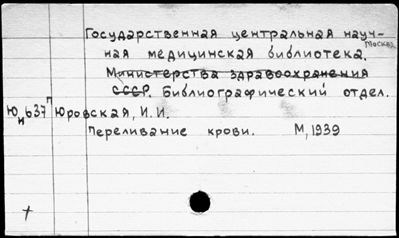 Государственная центральная науч-
ная медицинская библиотека. Москва
Министерства здравоохранения
СССР. Библиографический отдел.
Ю637П Юровская, И.И.
и
Переливание крови. М, 1939